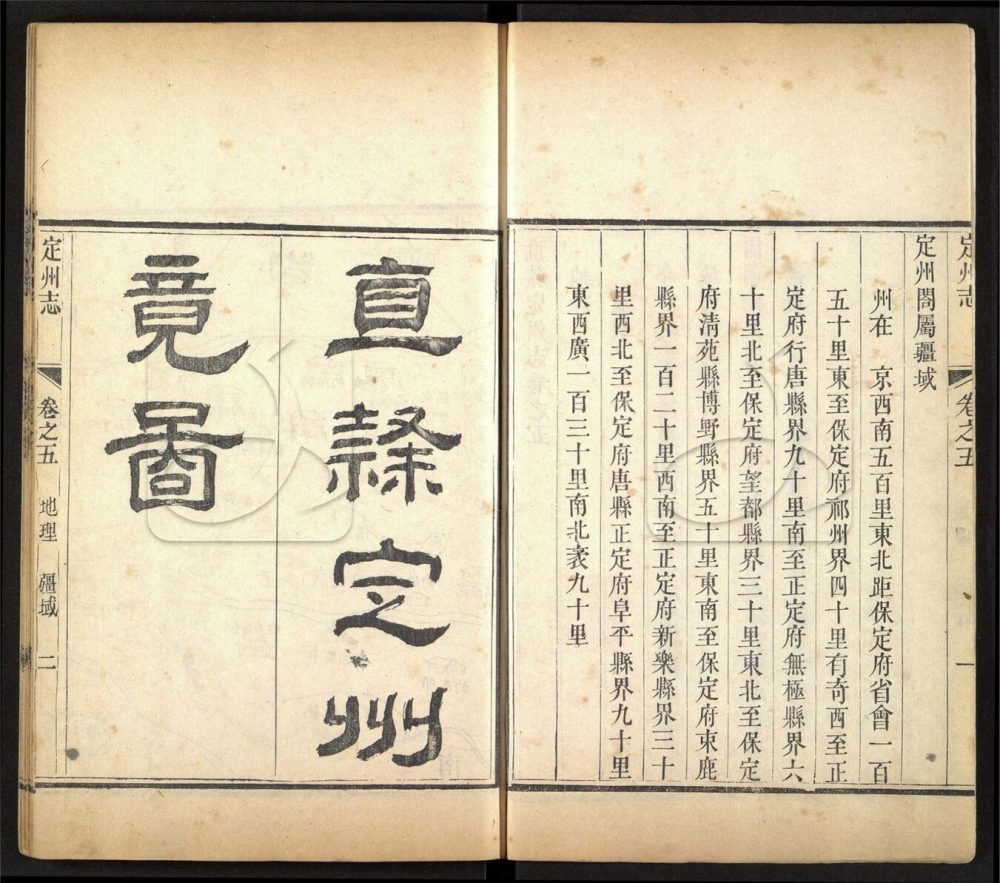 定州志
卷之五
一
定州閤屬疆域
州在　京西南五百里東北距保定府省會一百
五十里東至保定府祁州界四十里有奇西至正
定府行唐縣界九十里南至正定府無極縣界六
十里北至保定府望都縣界三十里東北至保定
府清苑縣博野縣界五十里東南至保定府束鹿
縣界一百二十里西南至正定府新樂縣界三十
里西北至保定府唐縣正定府阜平縣界九十里
東西廣一百三十里南北袤九十里
直隸定州
竟圖
定州志
卷之五
地理
疆域
二